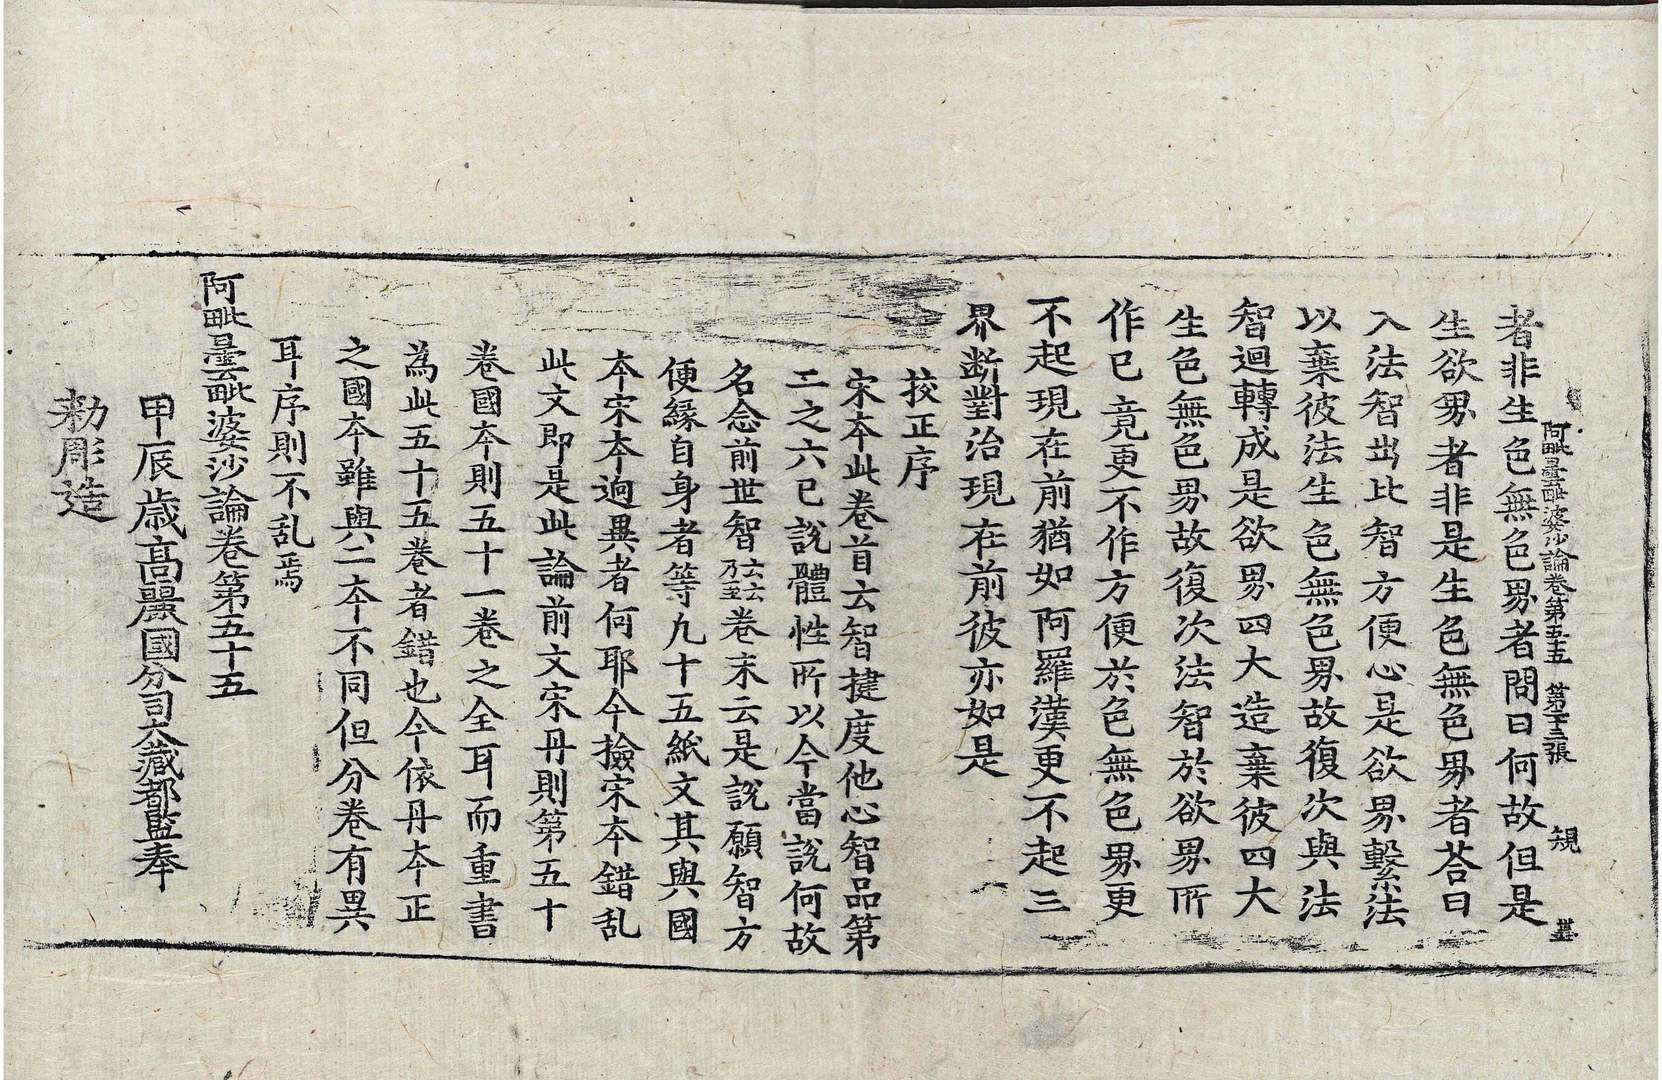 阿毗曇毗婆沙論卷第五十五 第二十三張 規
者非生色無色界者問曰何故但是
生欲界者非是生色無色界者荅曰
入法智出比智方便心是欲界繫法
以棄彼法生色無色界故復次與法
智迴轉成是欲界四大造棄彼四大
生色無色界故復次法智於欲界所
作已竟更不作方便於色無色界更
不起現在前猶如阿羅漢更不起三
界断對治現在前彼亦如是
挍正序
宋夲此卷首云智揵度他心智品第
二之六已說體性所以今當說何故
名念前世智乃至云云卷末云是說願智方
便緣自身者等九十五紙文其與國
夲宋夲逈異者何耶今撿宋夲錯乱
此文即是此論前文宋丹則第五十
卷國夲則五十一卷之全耳而重書
為此五十五卷者錯也今依丹夲正
之國夲雖與二夲不同但分卷有異
耳序則不乱焉
阿毗曇毗婆沙論卷第五十五
甲辰歳高麗國分司大藏都監奉
勑彫造